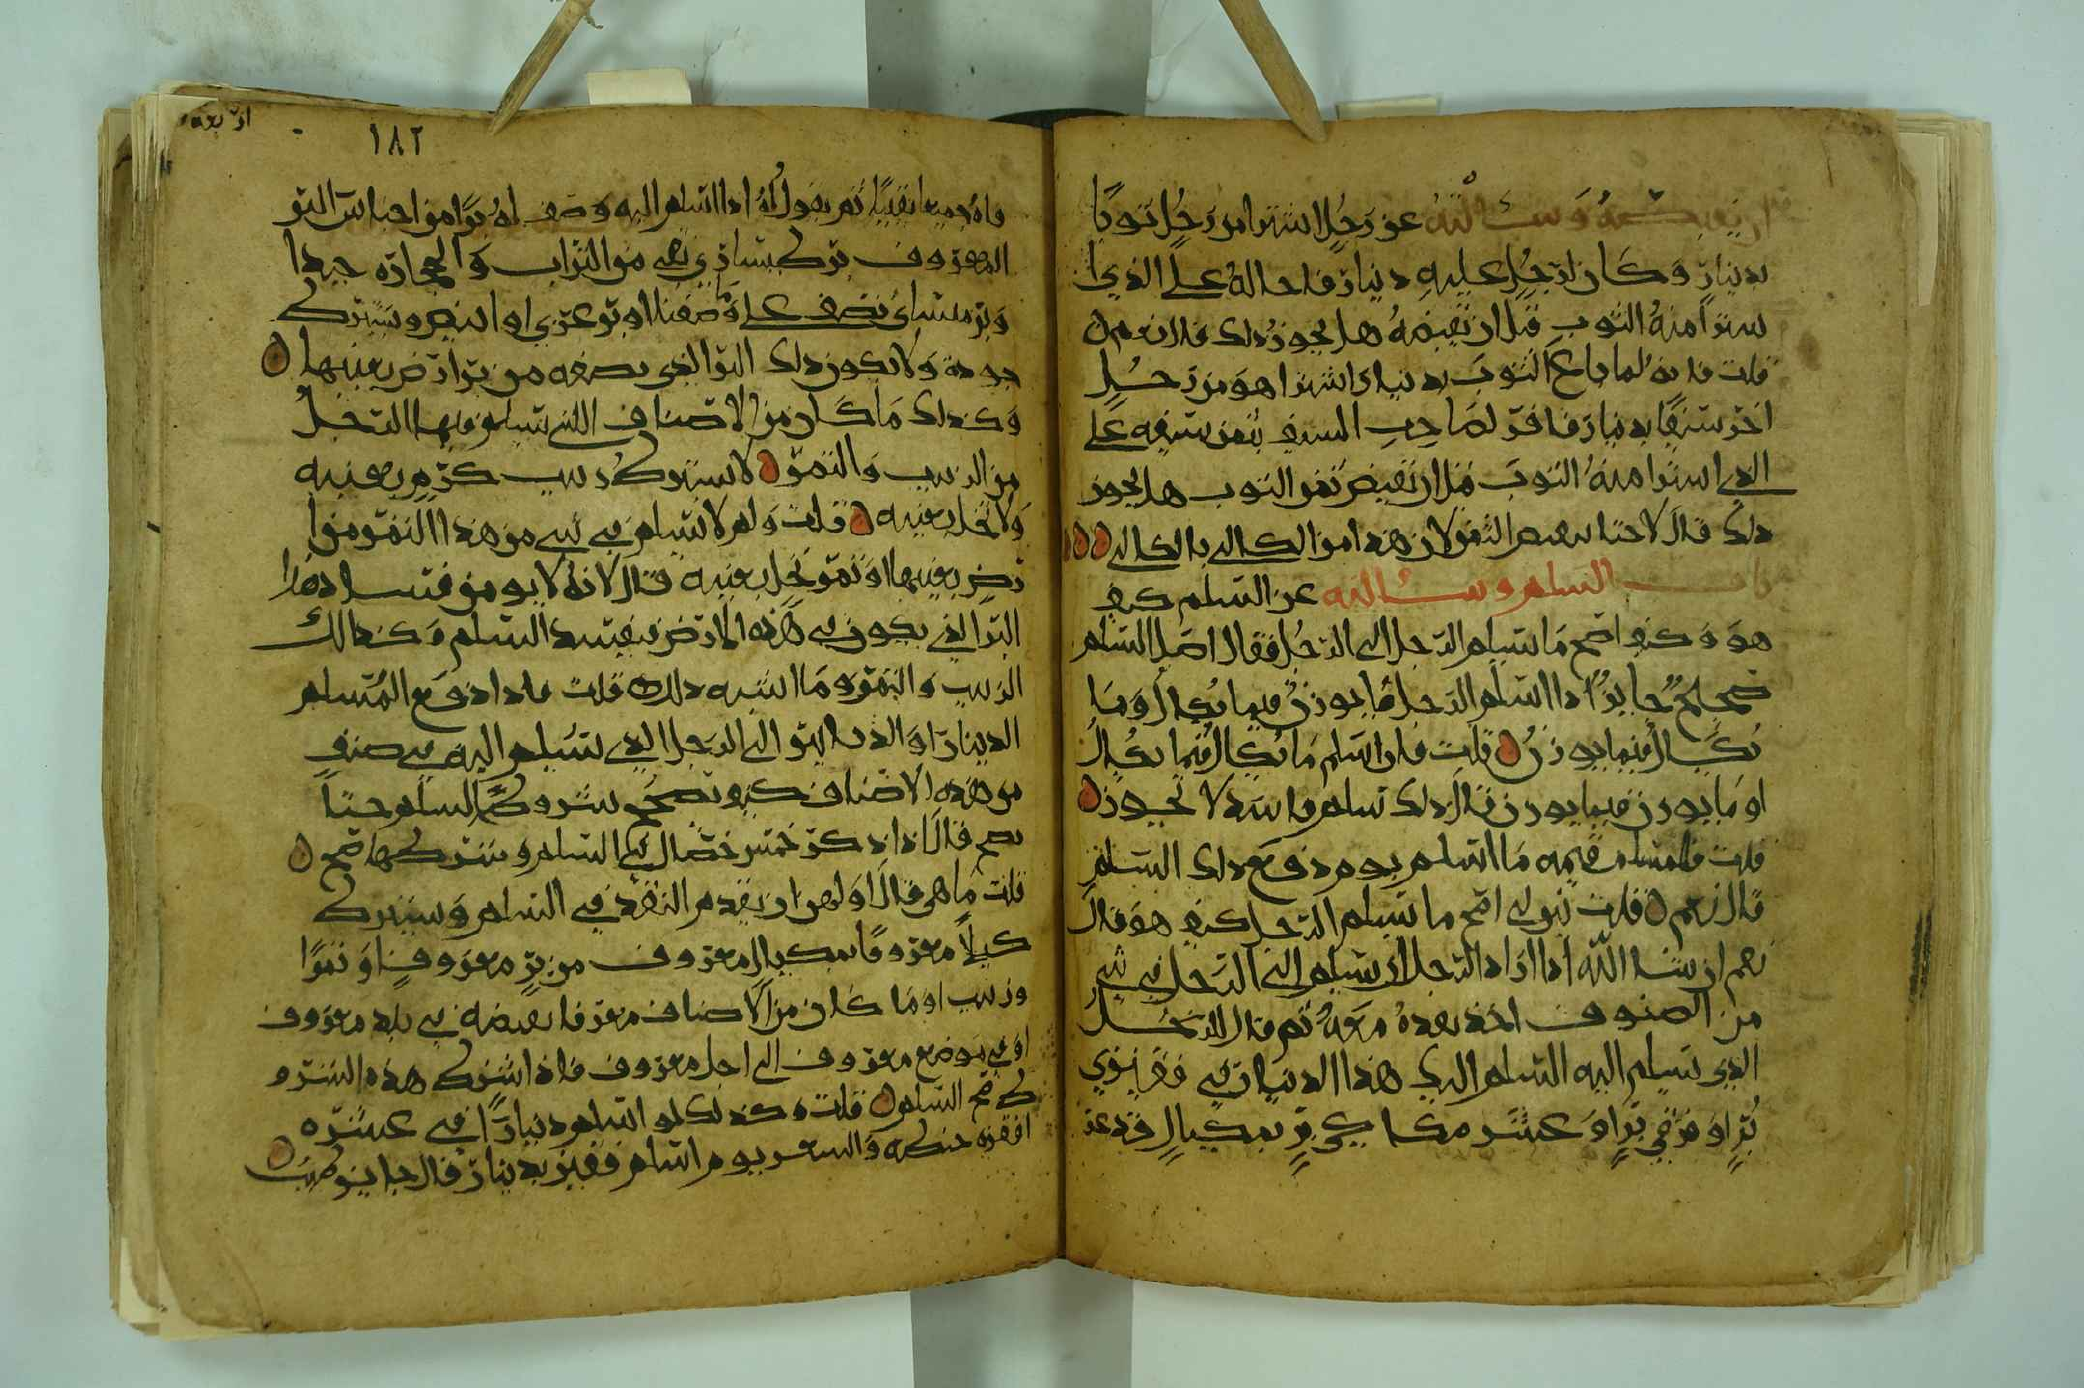 ان يبعث معه وسألته عن رجل اشترا من رجل ثوبا
بدينار وكان لرجل عليه دينار فاحاله على الذي ا
شترا منه الثوب قبل ان تقبضه هل يجوز ذلك قال نعم
قلت فانه لما باع الثوب بدينار اشترا هو من رجل
اخر سيفا بدينار فاقر لصاحب السيف بثمن سيفه على
الذي اشترا منه الثوب قبل ان تقبض ثمن الثوب هل يجوز
ذلك قال لا حتا يقبض الثمن لان هذا من الكالي بالكالي
باب السلم وسألته عن السلم كيف
هو وكيف اصح ما يسلم الرجل الى الرجل فقال اصل السلم
صحيح جايز اذا اسلم الرجل ما يوزن فيما يكال وما
يكال فيما يوزن قلت فان اسلم ما يكال فيما يكال
او ما يوزن فيما يوزن قال ذلك سلم فاسد لا يجوز
قلت فالمسلم قيمه ما اسلم يوم دفع ذلك السلم
قال نعم قلت بين لي اصح ما يسلم الرجل كيف هو قال
نعم ان شا الله اذا اراد الرجل ان يسلم الى الرجل في شي
من الصنوف اخذ نقده معه ثم قال للرجل
الذي يسلم اليه اسلم اليك هذا الدينار في قفيزي
بر او فرقي بر او عشر مكاكي بر بمكيال قد عر
١٨٢
فاه جميعا يقينا ثم يقول له اذا اسلم اليه وصف له برا من اجناس البر
المعروف بر كسار نقي من التراب والحجارة جيدا
وبر ميساني نصف على ما وصفنا او بر عربي او البيض ويشترط
جودة ولا يكون ذلك البر الذي يصفه من بر ارض بعينها
وكذلك ما كان من الاصناف اللتي يسلم فيها الرجل
من الزبيب والتمر لا يشترط زبيب كرم بعينه
ولا نخل بعينه قلت ولم لا يسلم في شي من هذا التمر من ا
رض بعينها او تمر نخل بعينه قال لانه لا يومن فساد هذا
البر الذي يكون في هذه الارض فيفسد السلم وكذالك
الزبيب والتمر وما اشبه ذلك قلت فاذا دفع المسلم
الدينار او الدنانير الى الرجل الذي يسلم اليه في صنف
من هذه الاصناف كيف يصحح شروط السلم حتا
يصح قال اذا ذكر خمس خصال في السلم وشرطها صح
قلت ما هي قال اولهن ان يقدم النقد في السلم ويشترط
كيلا معروفا بمكيال معروف من بر معروف او تمرا
وزبيب او ما كان من الاصناف معرفا يقبضه في بلد معروف
او في موضع معروف الى اجل معروف فاذا اشترط هذه الشرو
ط صح السلم قلت وكذلك لو اسلم دينارا في عشره
اقفزه حنطه والسعر يوم اسلم قفيز بدينار قال جايز